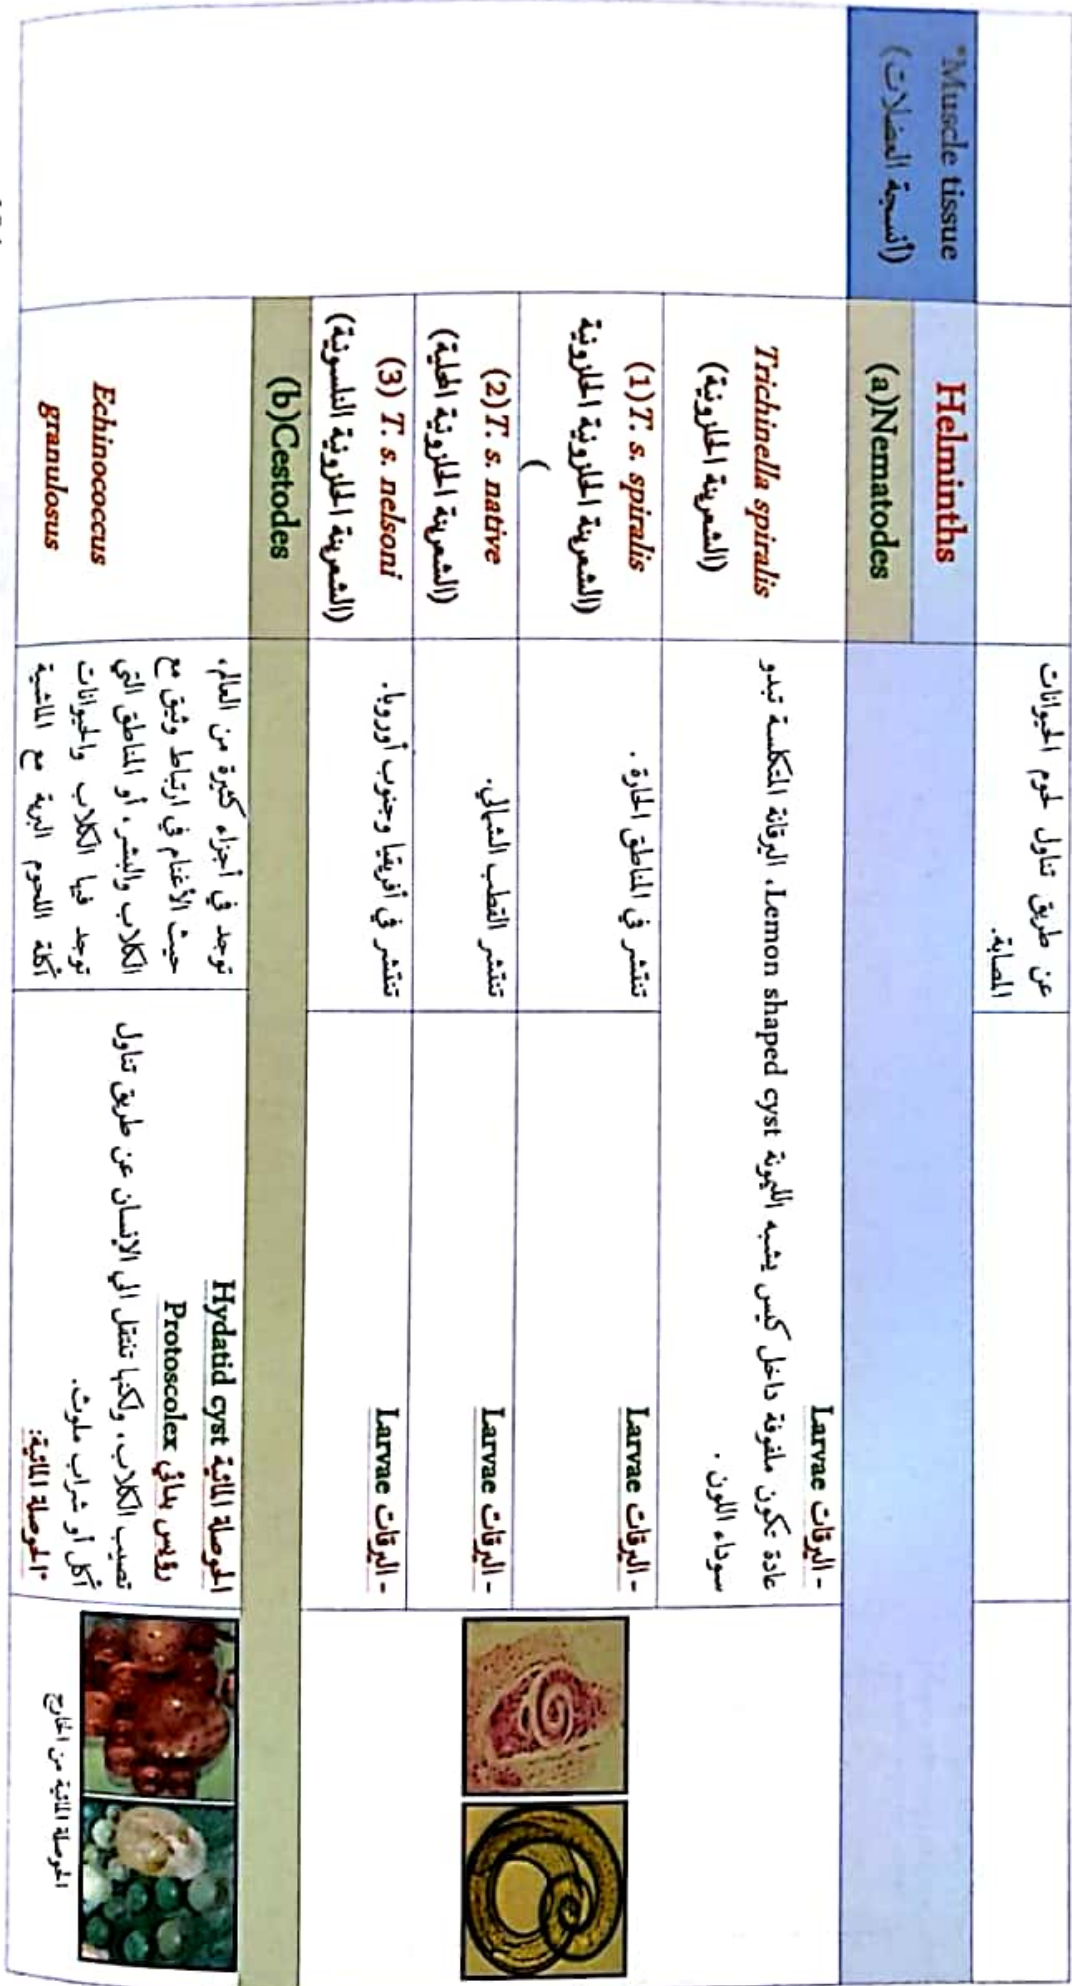 عن طريق تناول لحوم الحيوانات
المصابة.
*Muscle tissue
(أنسجة العضلات)
Helminths
(a)Nematodes
Trichinella spiralis
(الشعرينة الحلزونية)
- اليرقات Larvae
عادة تكون ملفوفة داخل كيس يشبه الليمونة Lemon shaped cyst، اليرقانة المتكلسة تبدو
سوداء اللون .
(1)T. s. spiralis
(الشعرينة الحلزونية الحلزونية
)
تنتشر في المناطق الحارة .
- اليرقات Larvae
(2)T. s. native
(الشعرينة الحلزونية المحلية)
تنتشر القطب الشمالي.
- اليرقات Larvae
(3) T. s. nelsoni
(الشعرينة الحلزونية النلسونية)
تنتشر في أفريقيا وجنوب أوروبا.
- اليرقات Larvae
(b)Cestodes
Echinococcus
granulosus
توجد في أجزاء كثيرة من العالم،
حيث الأغنام في ارتباط وثيق مع
الكلاب والبشر، أو المناطق التي
توجد فيا الكلاب والحيوانات
أكلة اللحوم البرية مع الماشية
الحوصلة المائية Hydatid cyst
رؤيس بدائي Protoscolex
تصيب الكلاب، ولكنها تنتقل الي الإنسان عن طريق تناول
أكل أو شراب ملوث.
*الحوصلة المائية:
الحوصلة المائية من الخارج